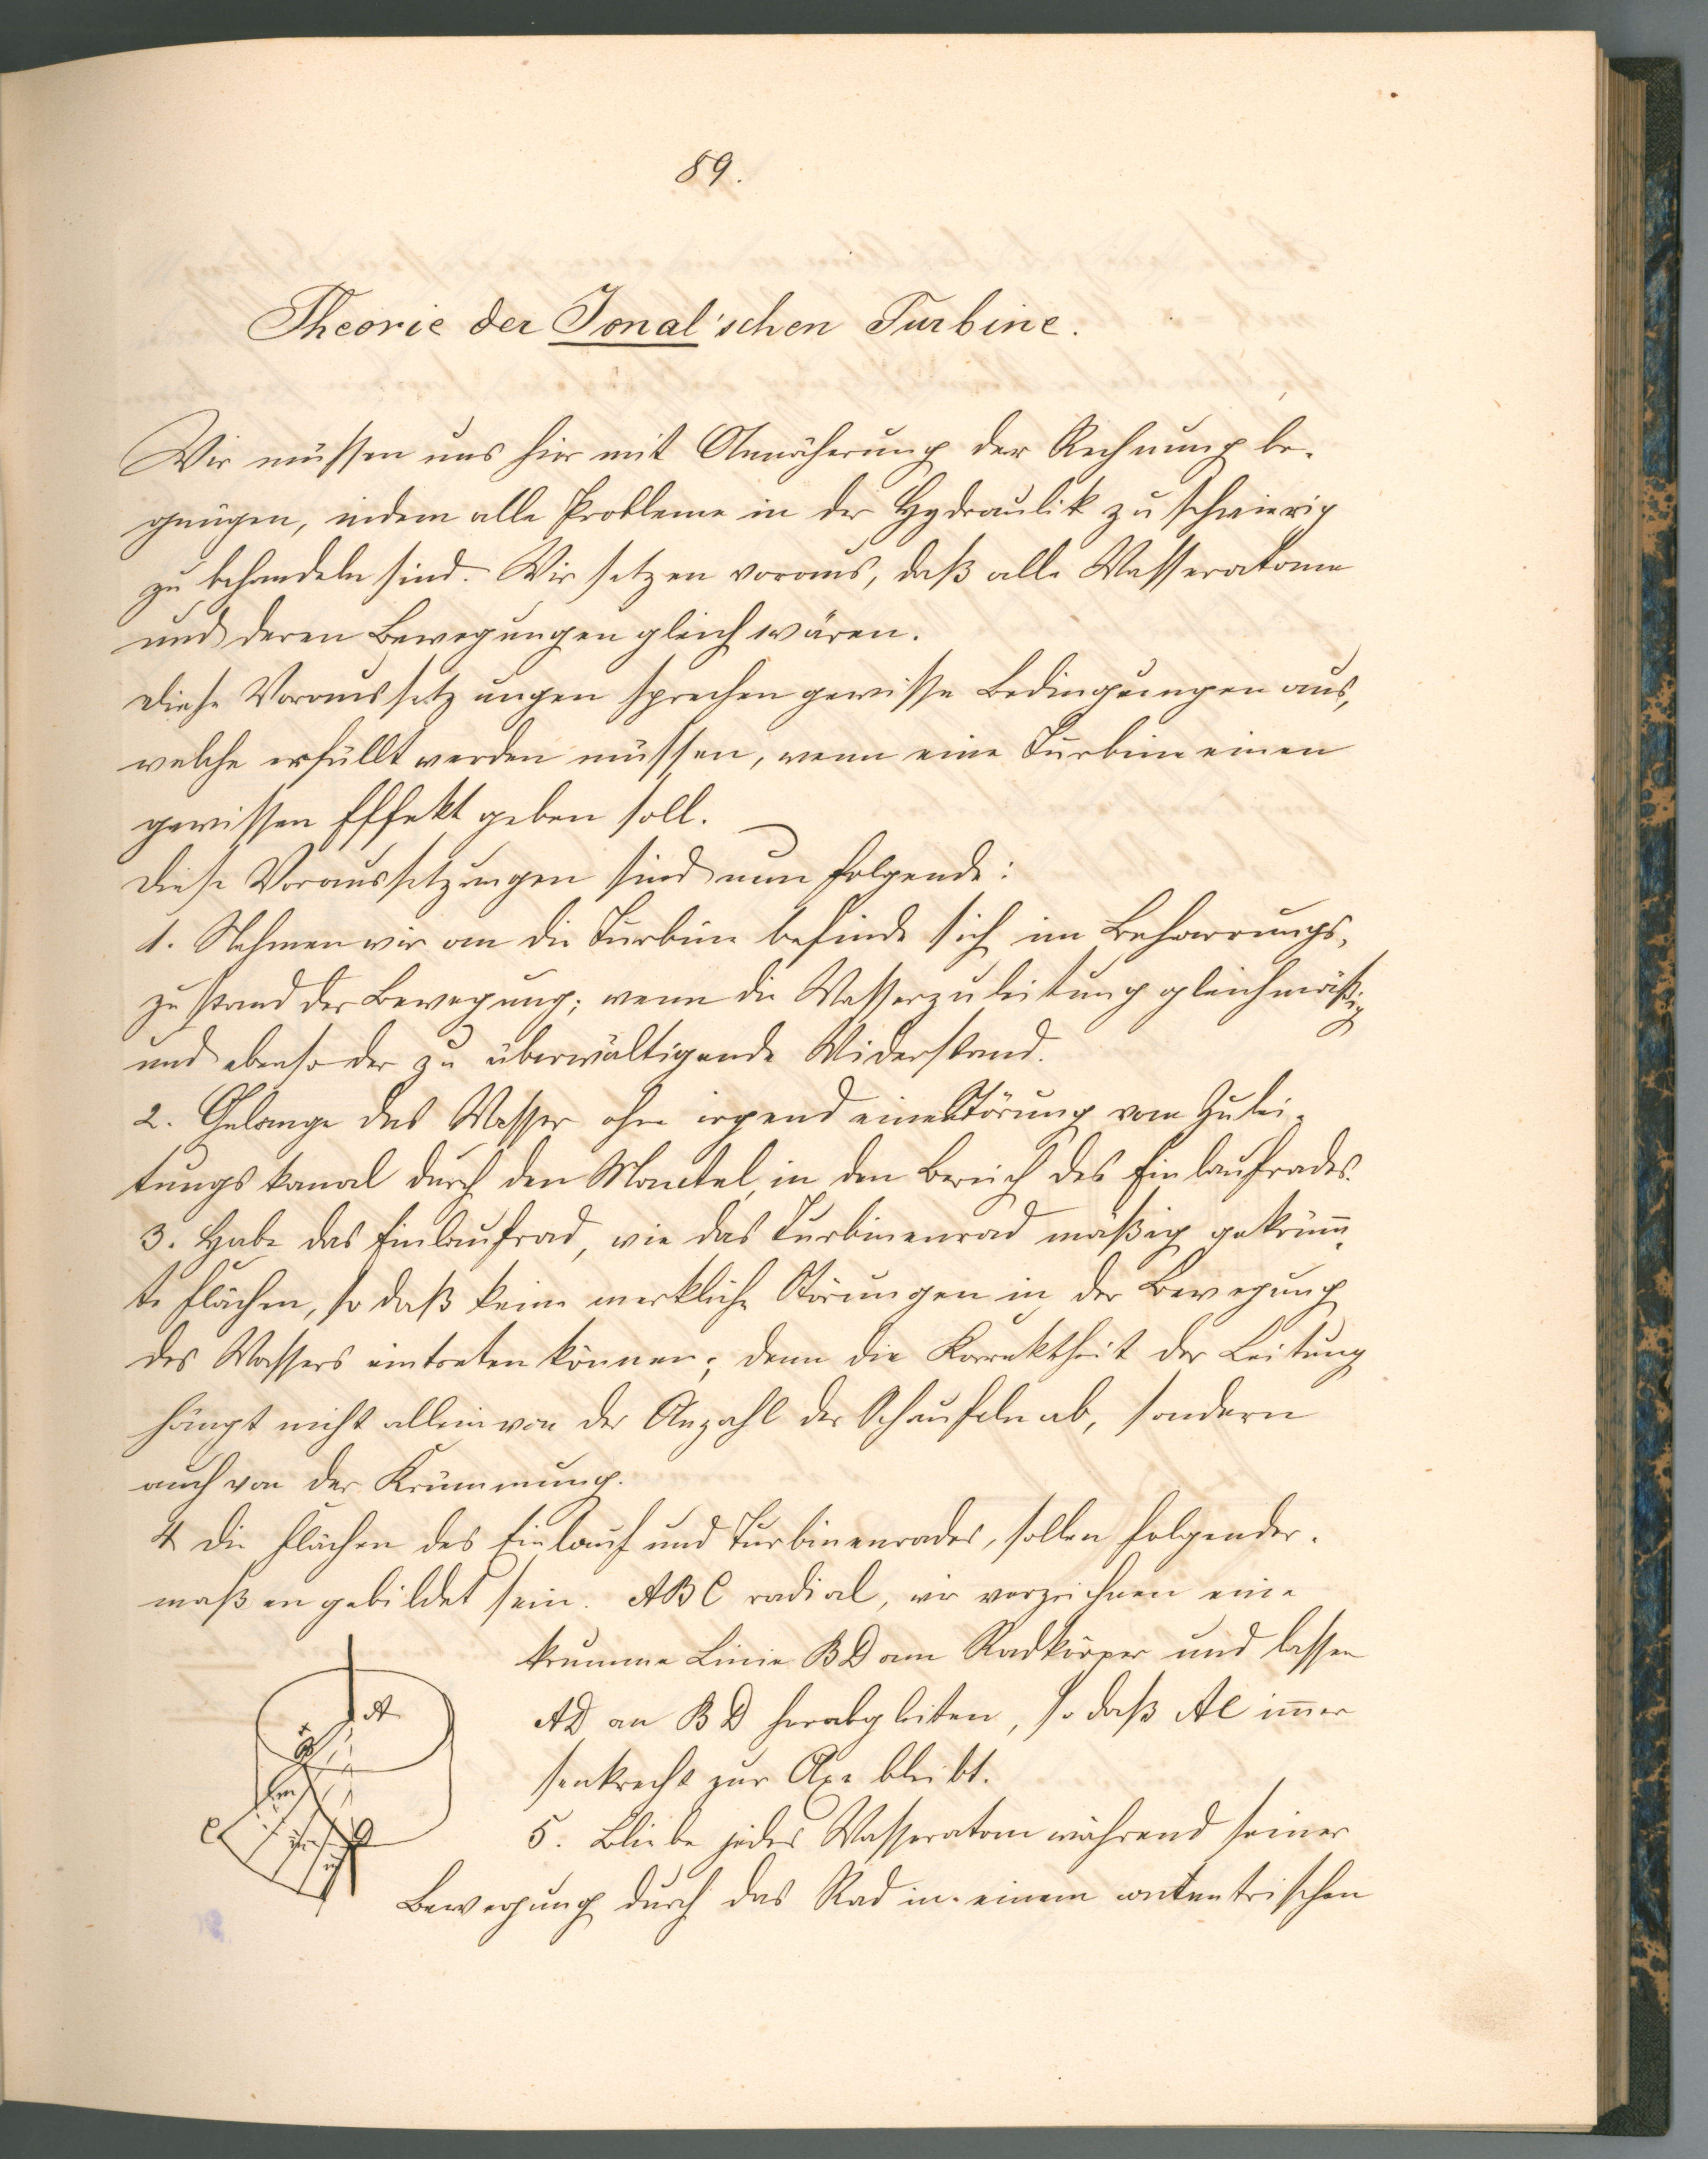 89.
Theorie der Jonal'schen Turbine.
Wir müssen uns hier mit Annäherung der Rechnung be-
gnügen, indem alle Probleme in der Hydraulik zu schwierig
zu behandeln sind. Wir setzen voraus, daß alle Wasseratome
und deren Bewegungen gleich wären.
Diese Voraussetzungen sprechen gewisse Bedingungen aus,
welche erfüllt werden müssen, wenn eine Turbine einen
gewissen Effekt geben soll.
Diese Voraussetzungen sind nun folgende:
1. Nehmen wir an die Turbine befinde sich im Beharrungs-
zustand der Bewegung; wenn die Wasserzuleitung gleichmäßig
und ebenso der zu überwältigende Widerstand.
2. Gelange das Wasser ohne irgend eine Störung vom Zulei-
tungskanal durch den Mantel in den Bereich des Einlaufrades.
3. Habe das Einlaufrad, wie das Turbinenrad mäßig gekrüm̄-
te Flächen, so daß keine merkliche Störungen in der Bewegung
des Wassers eintreten können; denn die Korrektheit der Leitung
hängt nicht allein von der Anzahl der Schaufeln ab, sondern
auch von der Krümmung.
4 Die Flächen des Einlauf und Turbinenrades, sollen folgender-
maßen gebildet sein. ABC radial, wir verzeichnen eine
krumme Linie BD am Radkörper und lassen
AD an BD herabgleiten, so daß AC im̄er
senkrecht zur Axe bleibt.
5. Bliebe jedes Wasseratom während seiner
Bewegung durch das Rad in einem contentrischen
A
B
C
D